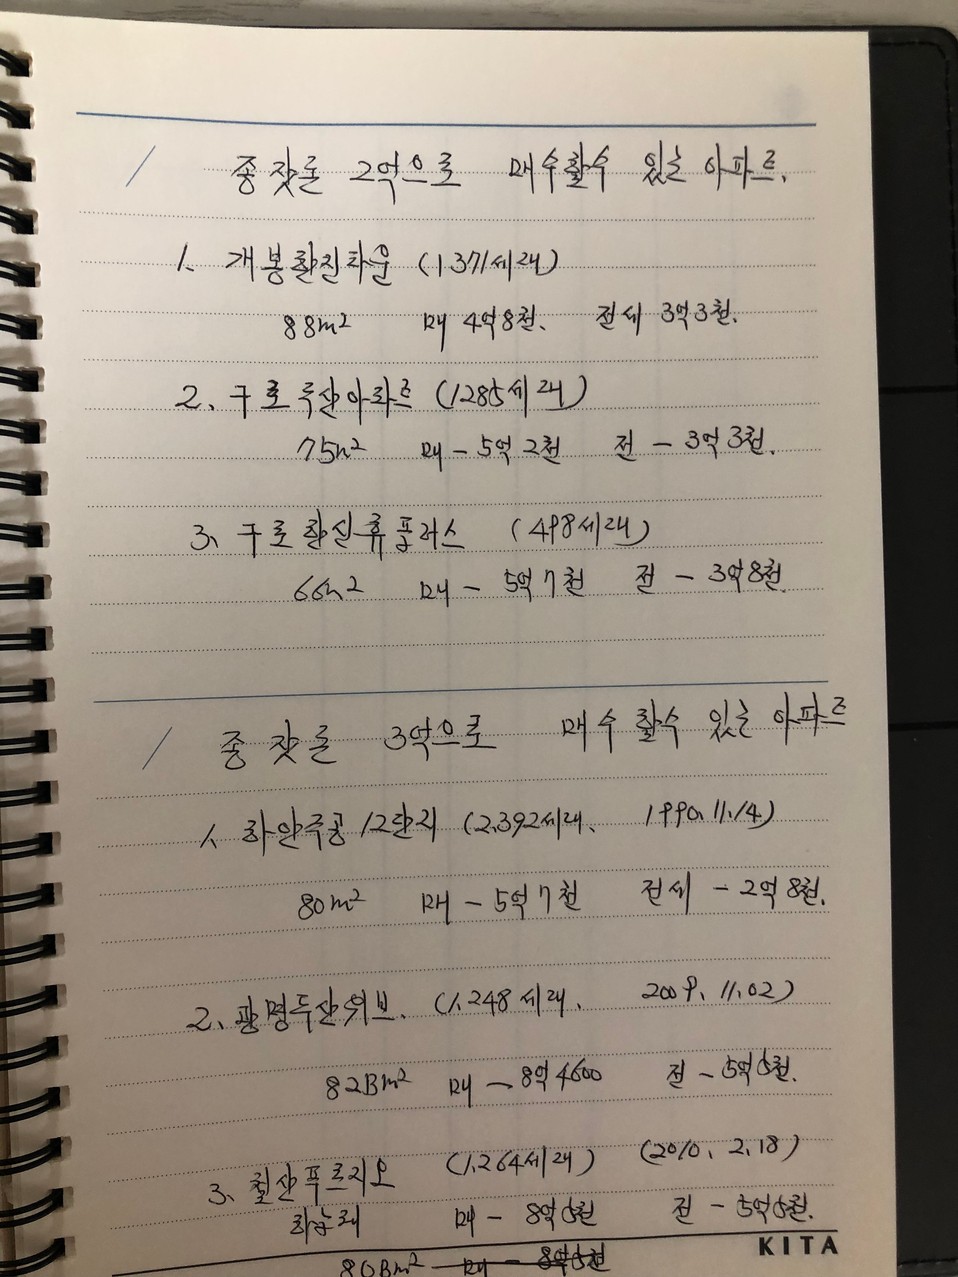 / 종잣돈 2억으로 매수할수 있는 아파트.
1. 개봉한진타운 (1371세대)
88m² 매 4억8천. 전세 3억3천.
2. 구로두산아파트 (1285세대)
75m² 매 - 5억 2천 전 - 3억3천.
3. 구로한신휴플러스 (498세대)
66m² 매 - 5억 7천 전 - 3억8천.
/ 종잣돈 3억으로 매수 할수 있는 아파트
1. 하안주공 12단지 (2,392세대, 1990.11.14)
80m² 매 - 5억 7천 전세 - 2억 8천.
2. 광명두산위브. (1,248세대, 2009. 11.02)
82Bm² 매 - 8억 4600 전 - 5억5천.
3. 철산푸르지오 (1,264세대) (2010. 2.18)
하늘채 매 - 8억5천 전 - 5억5천.
KITA
80Bm² 매 - 8억5천